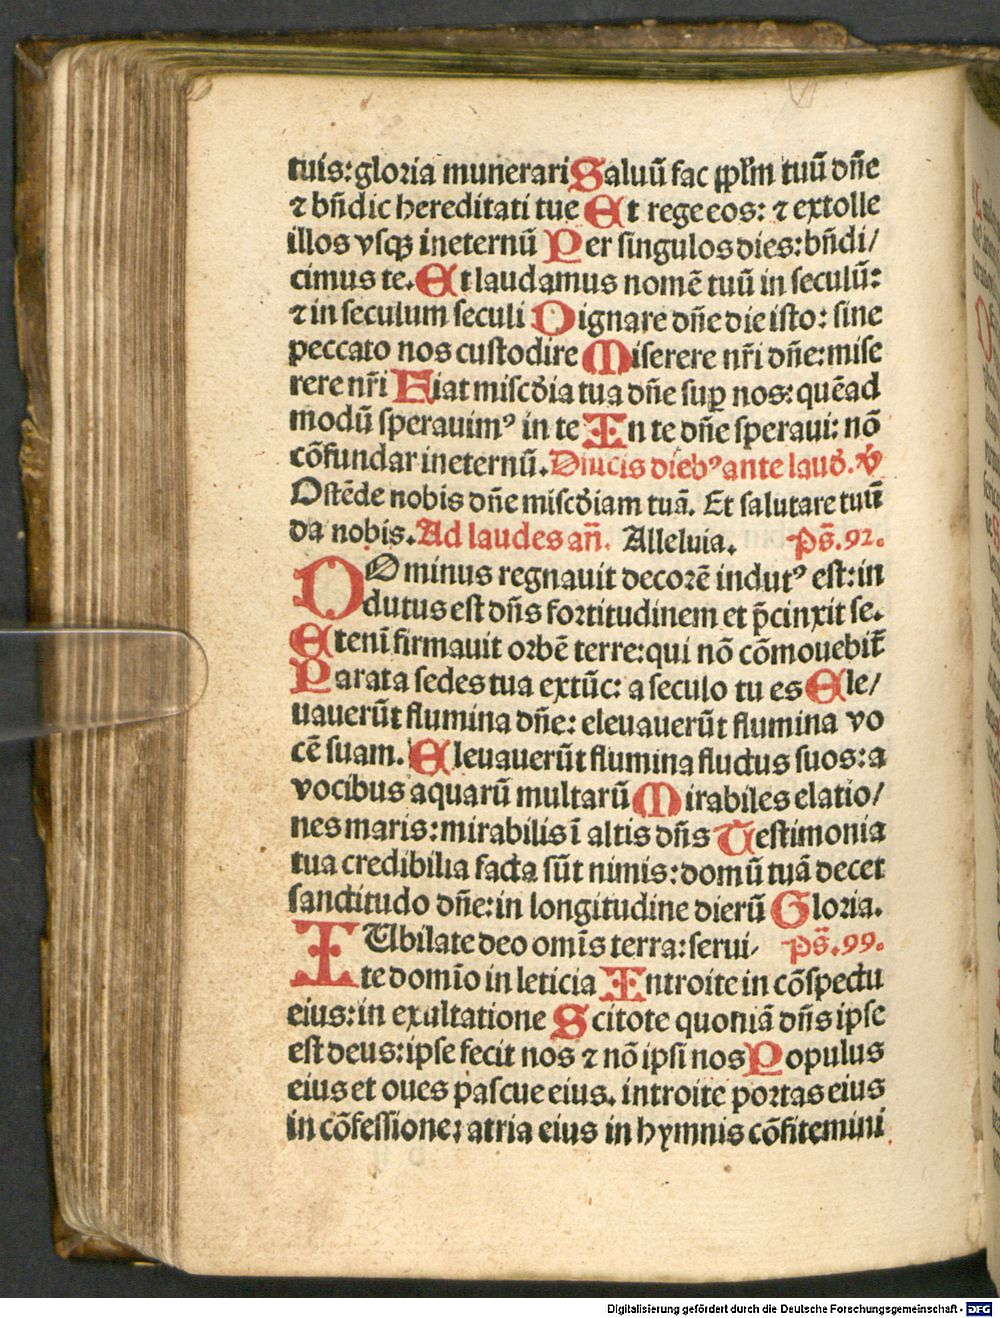 tuis: gloria munerari Saluū fac pplm tuū dñe
⁊ bñdic hereditati tue Et rege eos: ⁊ extolle
illos vsqꝫ ineternū Per singulos dies: bñdi/
cimus te. Et laudamus nomē tuū in seculū:
⁊ in seculum seculi Dignare dñe die isto: sine
peccato nos custodire Miserere nr̄i dñe: mise
rere nr̄i Fiat miscd̄ia tua dñe suꝑ nos: quēad
modū sperauimꝰ in te In te dñe speraui: nō
cōfundar ineternū. Diucis diebꝰ ante laud̄. v̄
Ostēde nobis dñe miscd̄iam tuā. Et salutare tuū
da nobis. Ad laudes añ. Alleluia. Ps̄. 92.
DOminus regnauit decorē indutꝰ est: in
dutus est dñs fortitudinem et p̄cinxit se.
Etenī firmauit orbē terre: qui nō cōmouebit̄
Parata sedes tua extūc: a seculo tu es Ele/
uauerūt flumina dñe: eleuauerūt flumina vo
cē suam. Eleuauerūt flumina fluctus suos: a
vocibus aquarū multarū Mirabiles elatio/
nes maris: mirabilis ī altis dñs Testimonia
tua credibilia facta sūt nimis: domū tuā decet
sanctitudo dñe: in longitudine dierū Gloria.
IUbilate deo omīs terra: serui/ Ps̄. 99.
te domīo in leticia Introite in cōspectu
eius: in exultatione Scitote quoniā dñs ipse
est deus: ipse fecit nos ⁊ nō ipsi nos Populus
eius et oues pascue eius. introite portas eius
in cōfessione: atria eius in hymnis cōfitemini
Digitalisierung gefördert durch die Deutsche Forschungsgemeinschaft - DFG